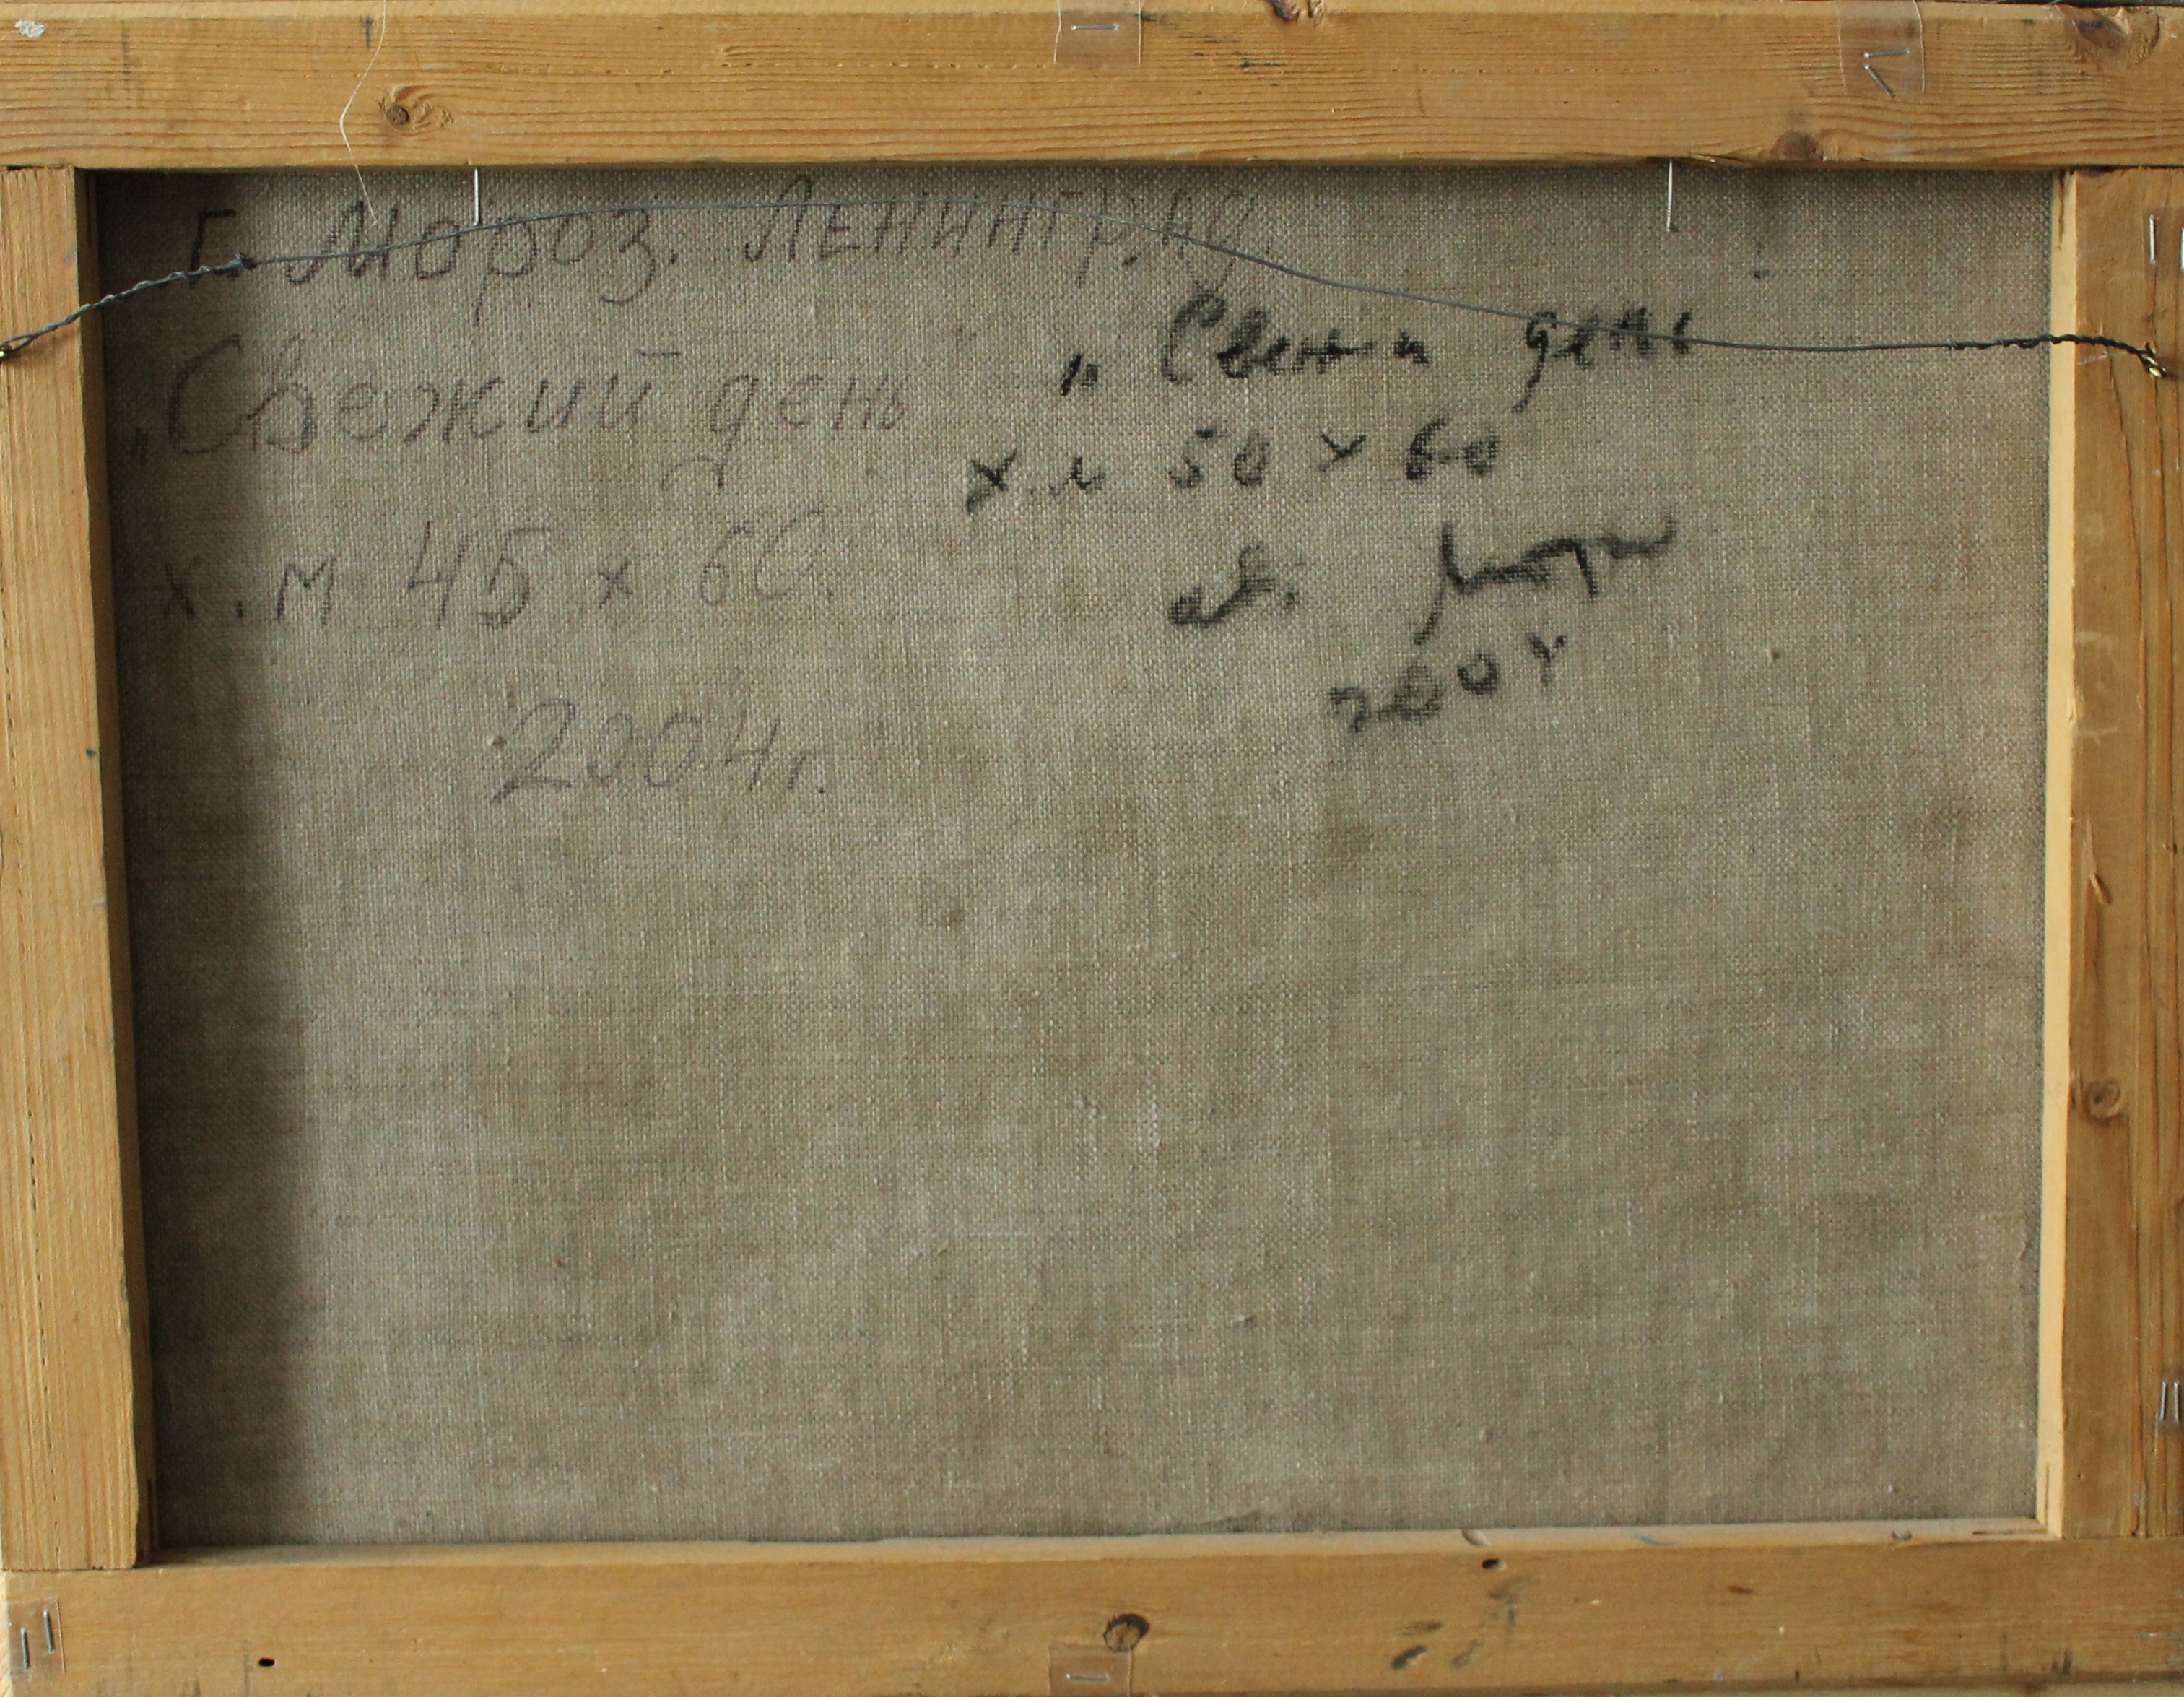 Г. Мороз. Ленинград.
„Свежий день"
х.м 45 х 60.
2004г.
„Свежи день
х.м 50 х 60
авт